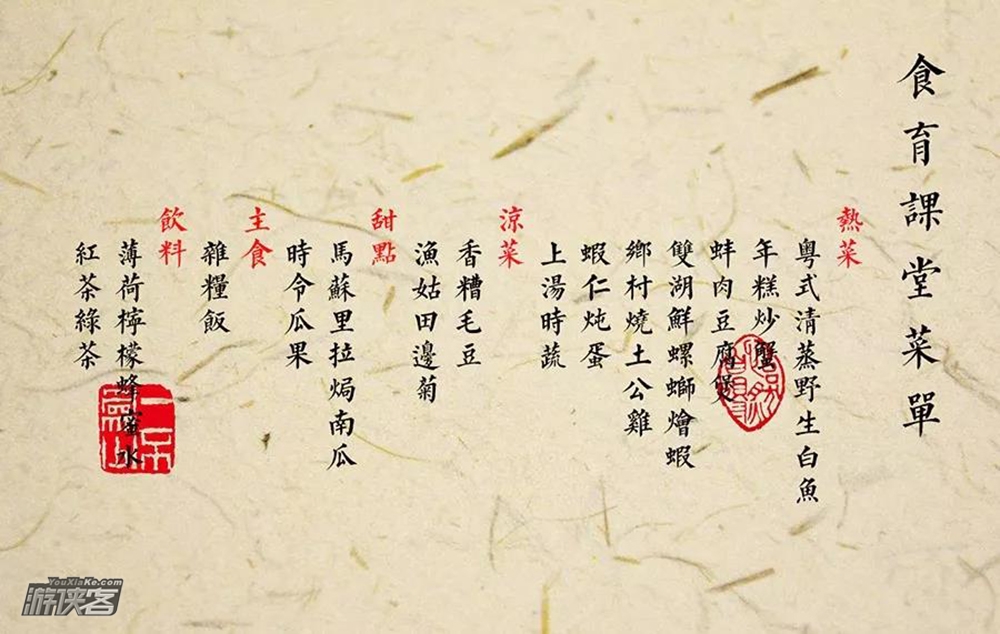 食育課堂菜單
熱菜
粵式清蒸野生白魚
年糕炒蟹
蚌肉豆腐煲
雙湖鮮螺螄燴蝦
鄉村燒土公雞
蝦仁炖蛋
上湯時蔬
涼菜
香糟毛豆
漁姑田邊菊
甜點
馬蘇里拉焗南瓜
時令瓜果
主食
雜糧飯
飲料
薄荷檸檬蜂蜜水
紅茶綠茶
YouXiaKe.com
游侠客